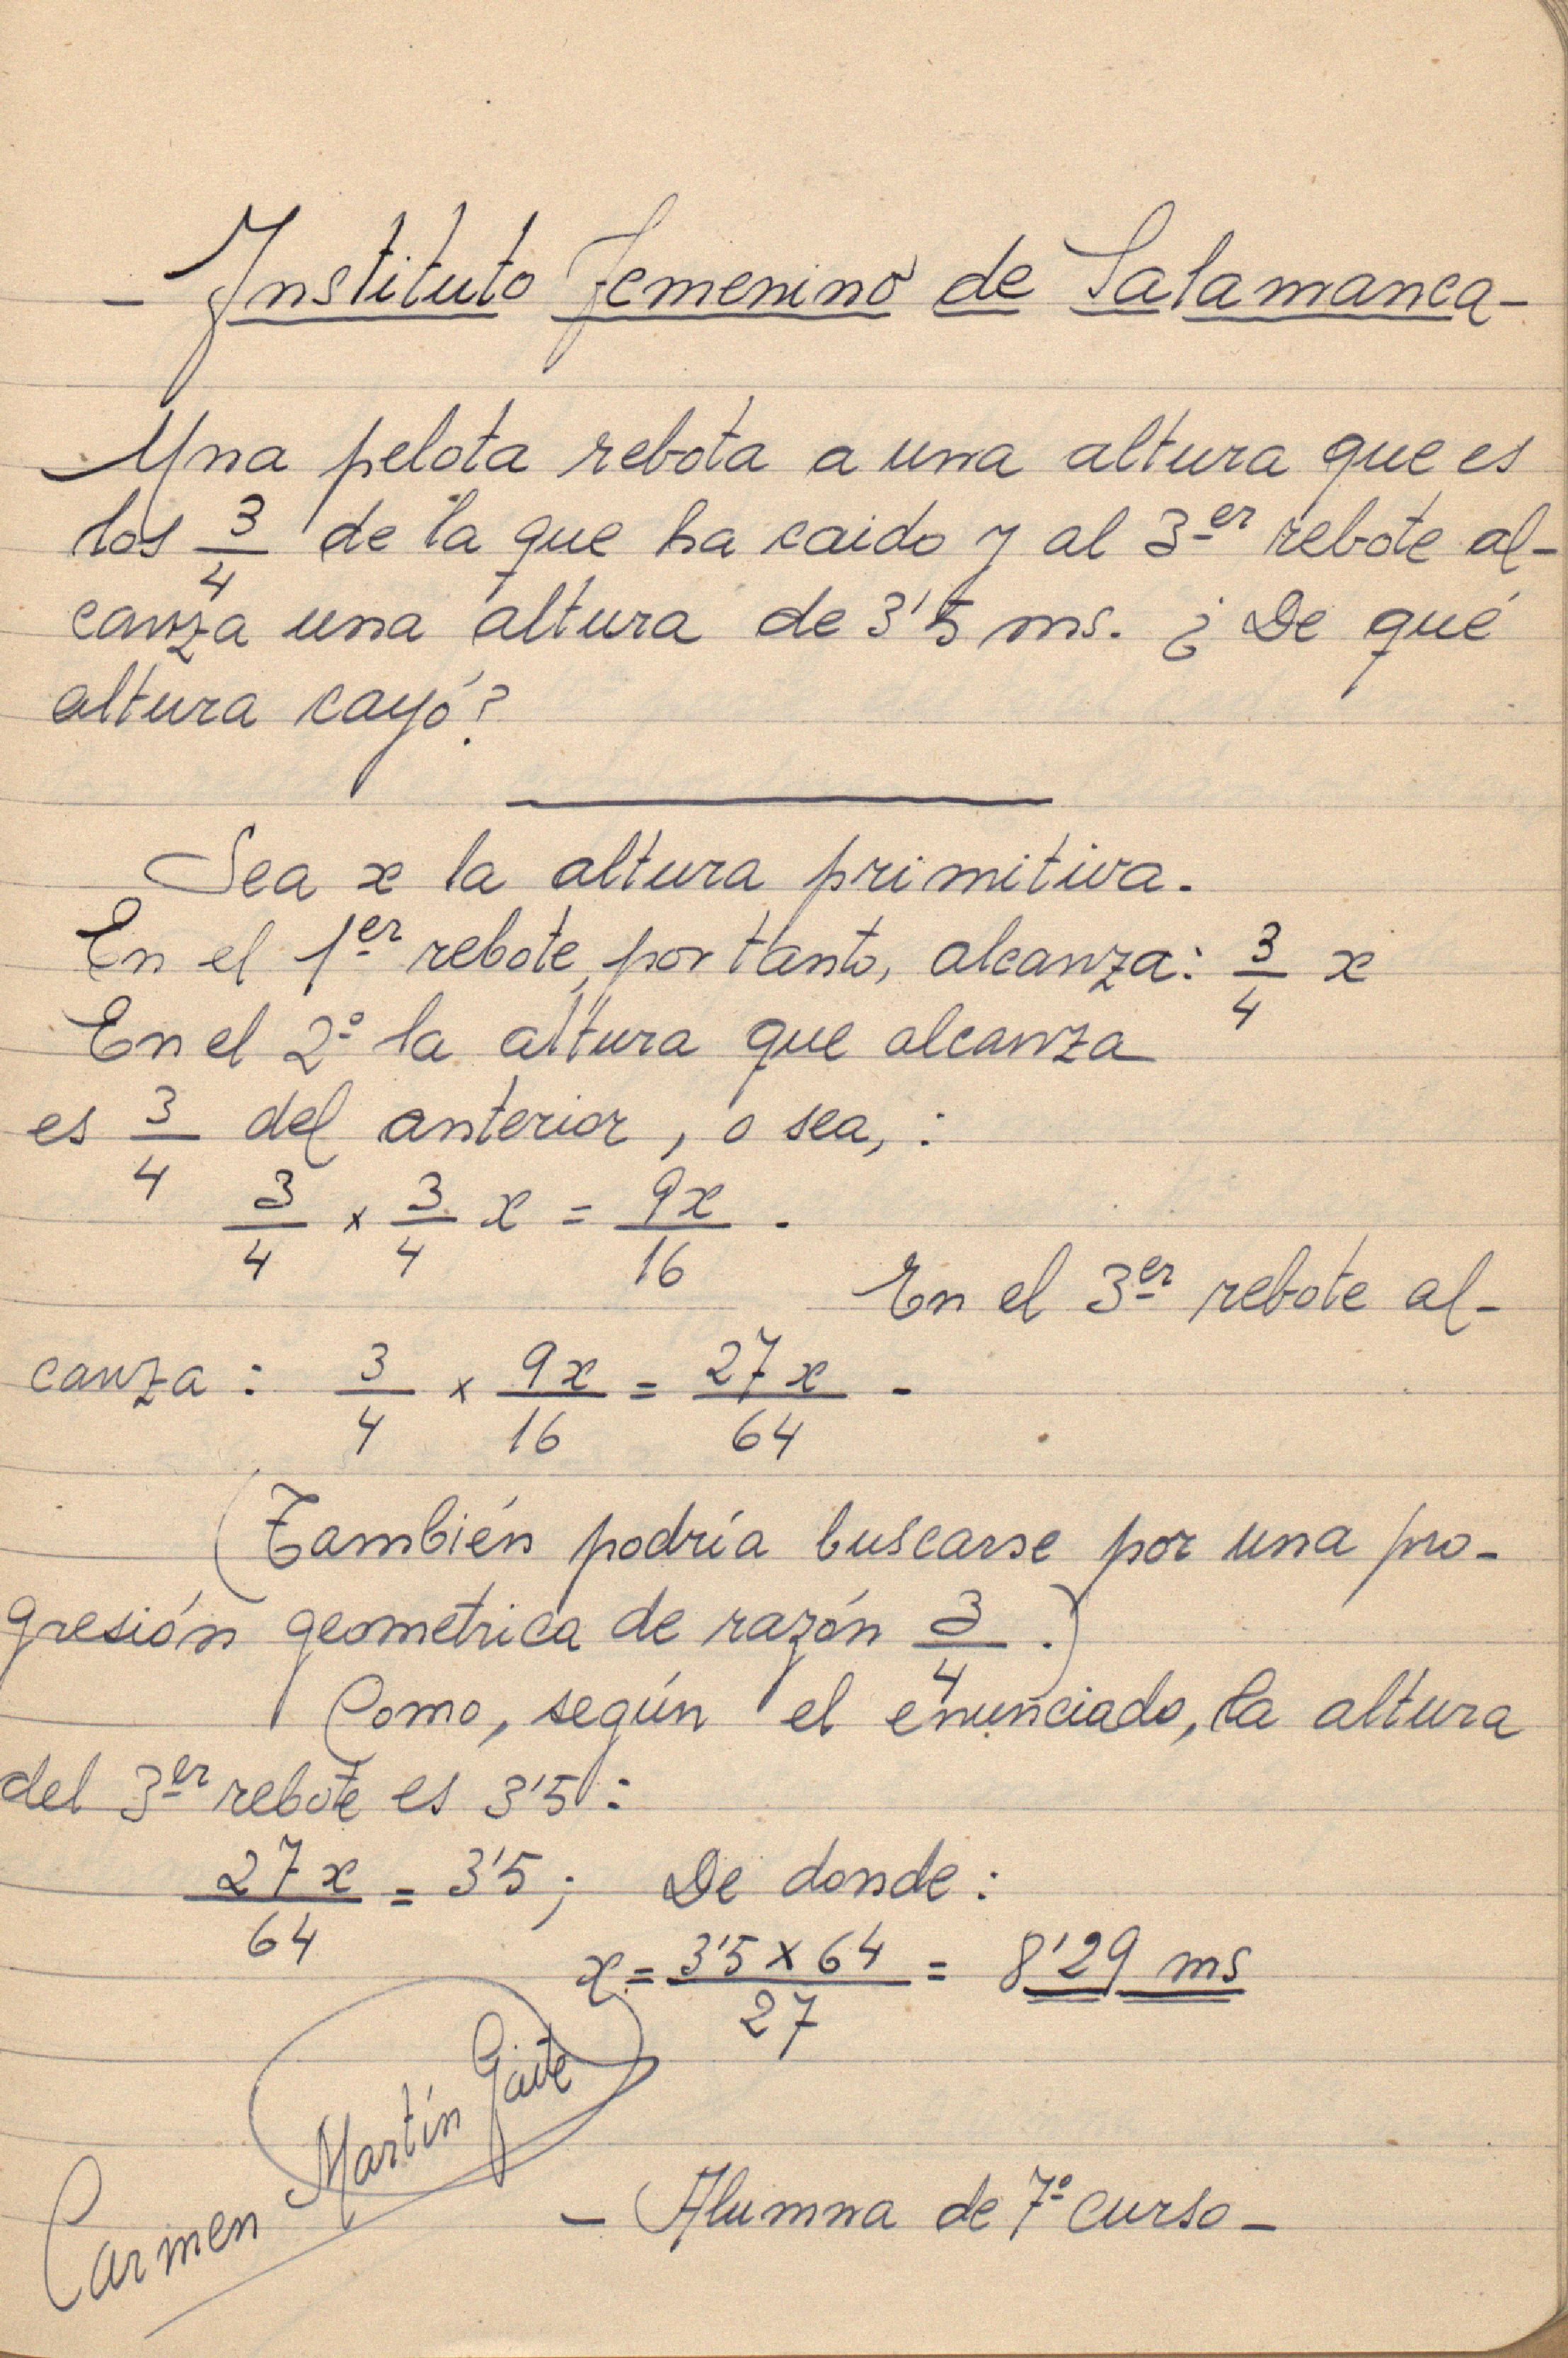 - Instituto Femenino de Salamanca -
Una pelota rebota a una altura que es
los 3/4 de la que ha caido y al 3er rebote al-
canza una altura de 3'5 ms. ¿De qué
altura cayó?
Sea x la altura primitiva.
En el 1er rebote, por tanto, alcanza: 3/4 x
En el 2º la altura que alcanza
es 3/4 del anterior, o sea, :
3/4 × 3/4 x = 9x/16 .
En el 3er rebote al-
canza: 3/4 × 9x/16 = 27x/64 .
(También podría buscarse por una pro-
gresión geometrica de razón 3/4 .)
Como, según el enunciado, la altura
del 3er rebote es 3'5 :
27x/64 = 3'5 ; De donde :
x = 3'5 × 64/27 = 8'29 ms
Carmen Martín Gaite
- Alumna de 7º curso -